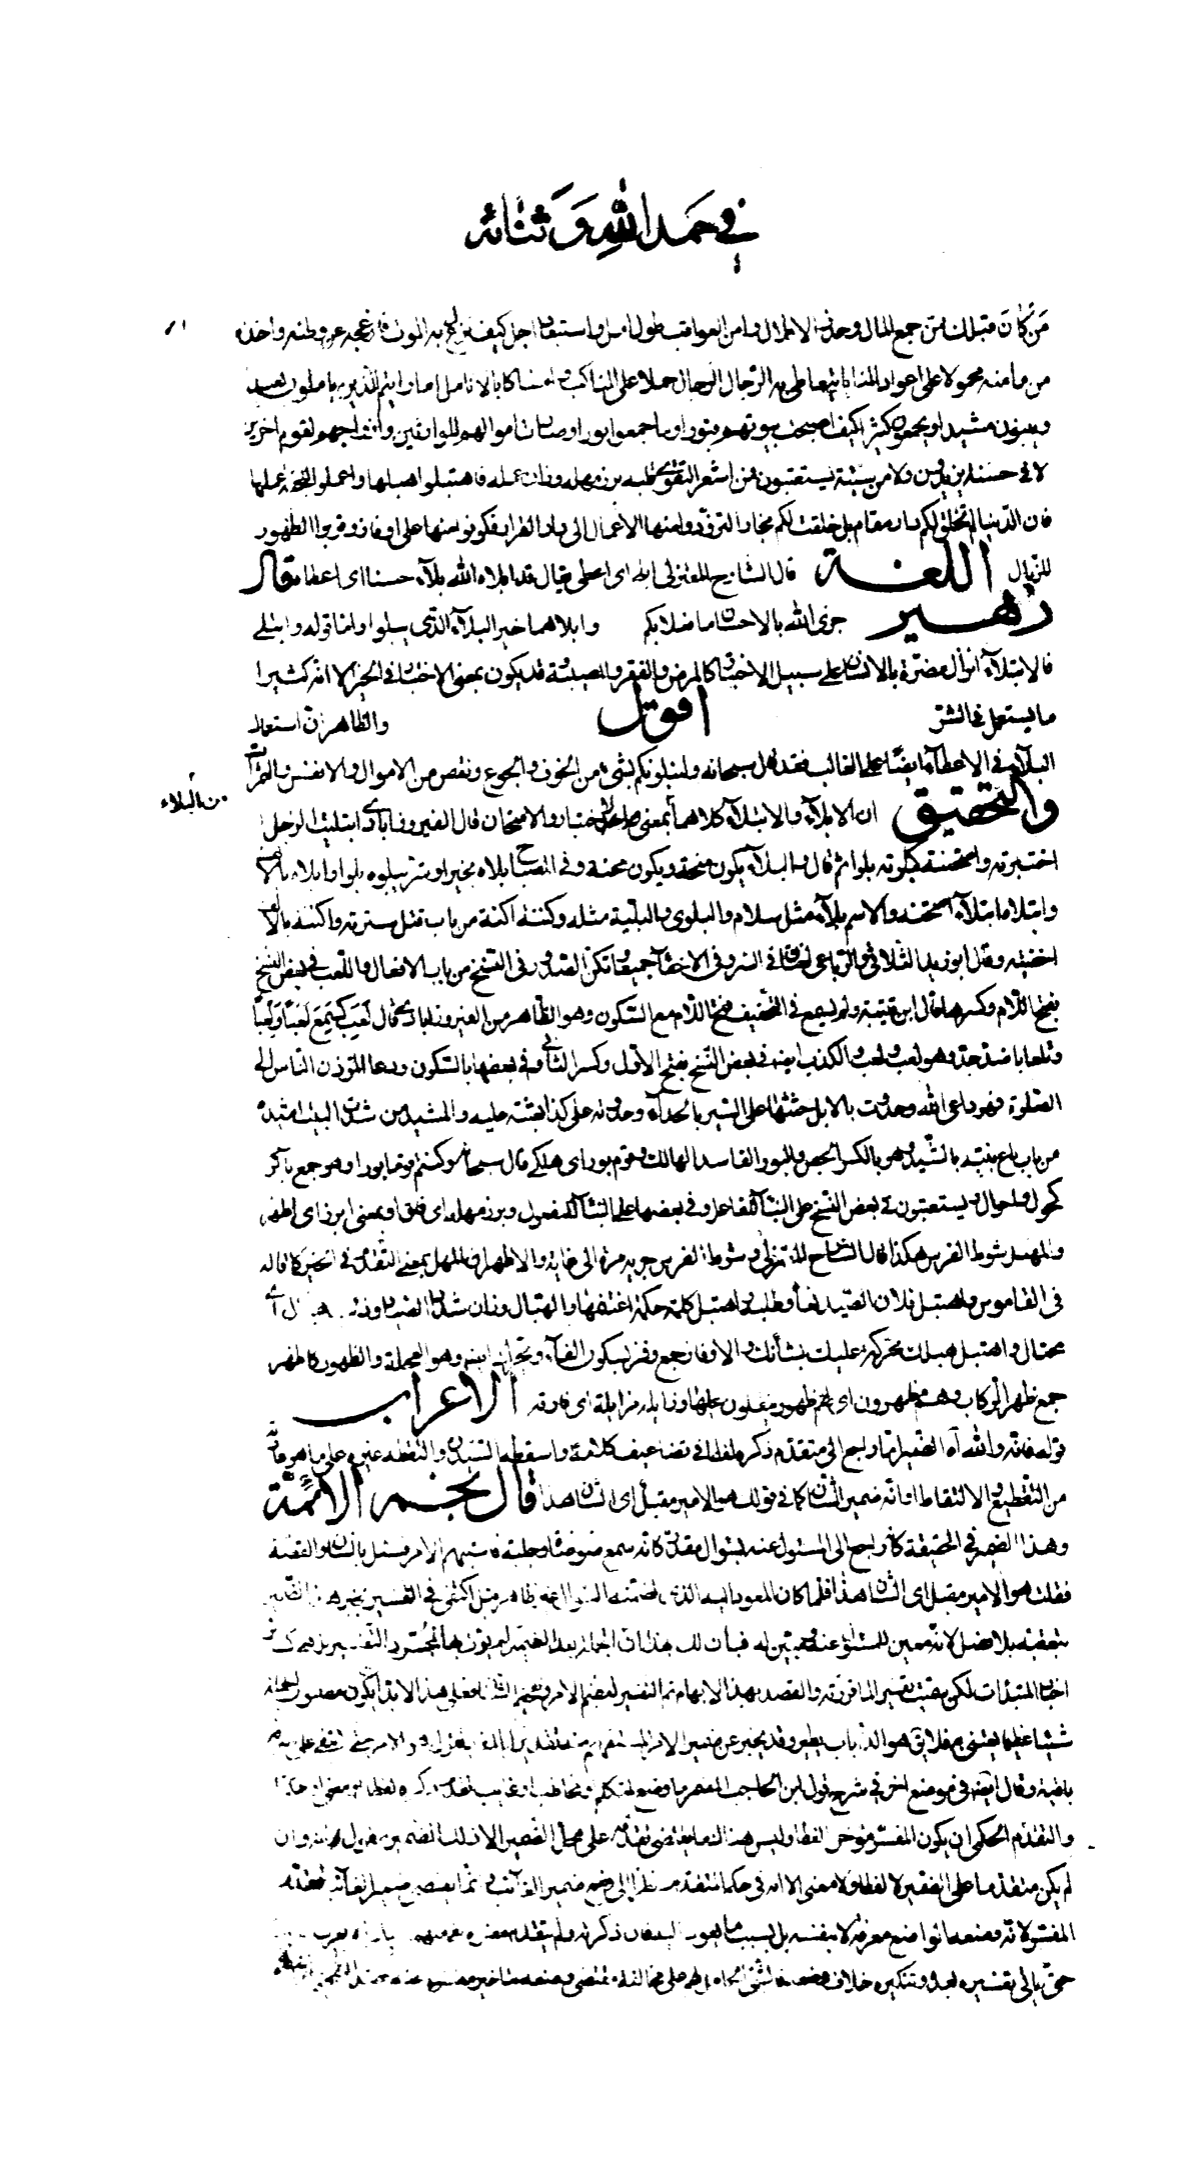 في حمد الله وثنائه
من كان قبلك ممن جمع المال وحذر الاقلال وامن العواقب طول امل واستبعاد اجل كيف نزل به الموت فازعجه عن وطنه واخذه
من مامنه محمولا على اعواد المنايا يتعاطى به الرجال الرجال حملا على المناكب وامساكا بالانامل اما رايتم الذين ياملون بعيدا
ويبنون مشيدا ويجمعون كثيرا كيف اصبحت بيوتهم قبورا وما جمعوا بورا وصارت اموالهم للوارثين وازواجهم لقوم آخرين
لا في حسنة يزيدون ولا من سيئة يستعتبون فمن اشعر التقوى قلبه برز مهله وفاز عمله فاهتبلوا هبلها واعملوا للجنة عملها
فان الدنيا لم تخلق لكم دار مقام بل خلقت لكم مجازا لتزودوا منها الاعمال الى دار القرار فكونوا منها على اوفاز وقربوا الظهور
للزيال اللغة قال الشارح المعتزلي ابلى اى اعطى يقال قد ابلاه الله بلاء حسنا اى اعطاه قال
زهير جزى الله بالاحسان ما فعلا بكم وابلاهما خير البلاء الذي يبلو واما قوله وابتلى
فالابتلاء انزال مضرة بالانسان على سبيل الاختبار كالمرض والفقر والمصيبة وقد يكون بمعنى الاختبار في الخير الا انه كثيرا
ما يستعمل في الشر اقول والظاهر ان استعمال
البلاء في الاعطاء ايضا على الغالب فقد قال سبحانه ولنبلونكم بشيء من الخوف والجوع ونقص من الاموال والانفس والثمرات
من البلاء
والتحقيق ان الابلاء والابتلاء كلاهما بمعنى الاختبار والامتحان قال الفيروزابادى ابتليت الرجل
اختبرته وامتحنته كبلوته بلوا ثم قال والبلاء يكون منحة ويكون محنة وفي المصباح ابلاه بخير او شر يبلوه بلوا وابلاه بالالف
وابتلاه ابتلاء امتحنه والاسم بلاء مثل سلام والبلوى والبلية مثله وكننته اكنه من باب قتل سترته واكننته بالالف
اخفيته وقال ابو زيد الثلاثي والرباعى لغتان في الستر وفي الاخفاء جميعا وتكن الصدور في النسخ من باب الافعال واللعب في بعض النسخ
بفتح اللام وكسرها قال ابن قتيبة ولم يسمع في التخفيف فتح اللام مع السكون وهو الظاهر من الفيروزابادى حيث قال لعب كسمع لعبا ولعبا
وتلعابا ضد جد وهو لعب ولعب والكذب ايضا في بعض النسخ بفتح الاول وكسر الثاني وفي بعضها بالسكون ودعا المؤذن الناس الى
الصلوة فهو داعى الله وحدوت بالابل حثثتها على السير بالحداء وحدوته على كذا بعثته عليه والمشيد من شدت البيت اشيده
من باب باع بنيته بالشيد وهو بالكسر الجص والبور الفاسد الهالك وقوم بور اى هلكى قال سبحانه وكنتم قوما بورا وهو جمع بائر
كحول وحائل ويستعتبون في بعض النسخ على البناء للفاعل وفي بعضها على البناء للمفعول وبرز مهله اى فاق او بمعنى ابرز اى اظهر
والمهل شوط الفرس هكذا قال الشارح المعتزلي وشوط الفرس جريه مرة الى غاية والاظهر ان المهل بمعنى التقدم في الخير كما قاله
في القاموس واهتبل فلان الصيد بغاه وطلبه واهتبل كلمة حكمة اغتنمها والهبال وزان شداد الصياد
محتال واهتبل هبلك محركة عليك بشأنك والاوفاز جمع وفز بسكون الفاء وتحرك ايضا وهو العجلة والظهور كاظهر
جمع ظهر الركاب وهم مظهرون اى لهم ظهور ينقلون عليها وزايله مزايلة اى فارقه الاعراب
قوله فانه والله آه الضمير اما راجع الى متقدم ذكره لفظا في تضاعيف كلامه واسقطه السيد والتقطه غيره على ما هو دأبه
من التقطيع والالتقاط او انه ضمير الشأن كما في قولك هو الامير مقبل اى الشأن هذا قال نجم الائمة
وهذا الضمير في الحقيقة كأنه راجع الى المسئول عنه بسؤال مقدر كانه سمع ضوضاء وجلبة فاستبهم الامر فيسئل بالشأن والقصة
فقلت هو الامير مقبل اى الشأن هذا فلما كان المعود اليه الذى تضمنه السؤال غير ظاهر قبل اكتفى في التفسير بخبر هذا الضمير
بتعقبه بلا فصل لانه معين للمسئول عنه ومبين له فبان لك بهذا ان الجملة بعد الضمير لم يؤت بها لمجرد التفسير بل هي كسائر
اخبار المبتدآت لكن سميت تفسيرا لما قررته والقصد بهذا الابهام ثم التفسير تعظيم الامر وتفخيم الشأن فعلى هذا لا بد ان يكون مضمون الجملة
شيئا عظيما يعتنى به فلا يق هو الذباب يطير وقد يخبر عن ضمير الامر
وقال ايضا في موضع آخر في شرح قول ابن الحاجب المضمر ما وضع لمتكلم او مخاطب او غايب تقدم ذكره لفظا او معنى او حكما
والتقدم الحكمى ان يكون المفسر مؤخرا لفظا وليس هناك ما يقتضى تقدمه على محل الضمير الا ذلك الضمير فنقول انه وان
لم يكن متقدما على الضمير لا لفظا ولا معنى الا انه في حكم المتقدم نظرا الى وضع ضمير الغائب وانما يقتضى ضمير الغائب تقدم
المفسر لانه وضعه الواضع معرفة لا بنفسه بل بسبب ما يعود اليه فان ذكرته ولم يتقدم مفسره
حتى ياتى تفسيره بعده وتنكيره خلاف وضعه